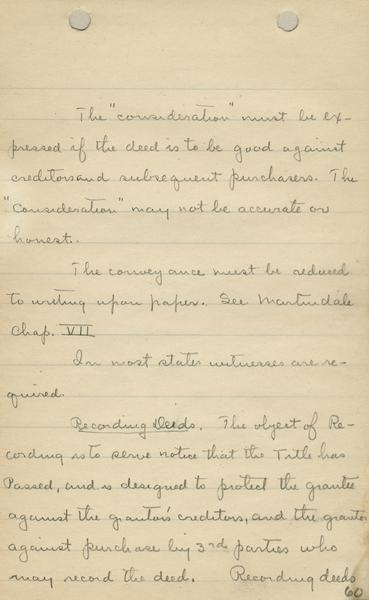 The "consideration" must be ex-
pressed if the deed is to be good against
creditors and subsequent purchasers. The
"Consideration" may not be accurate or
honest.
The conveyance must be reduced
to writing upon paper. See Martindale
Chap. VII
In most states witnesses are re-
quired.
Recording Deeds. The object of Re-
cording is to serve notice that the Title has
Passed, and is designed to protect the grantee
against the grantor's creditors, and the grantor
against purchase by 3rd parties who
may record the deed. Recording deeds
60